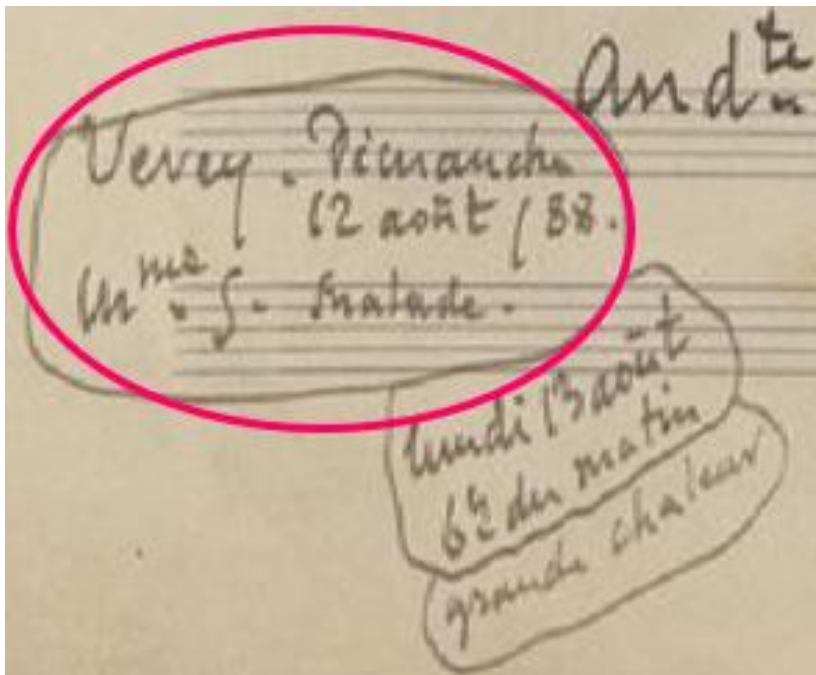 And^te
Vevey. Dimanche
12 août / 88.
M^me. S. malade.
lundi 13 août
6h du matin
grande chaleur